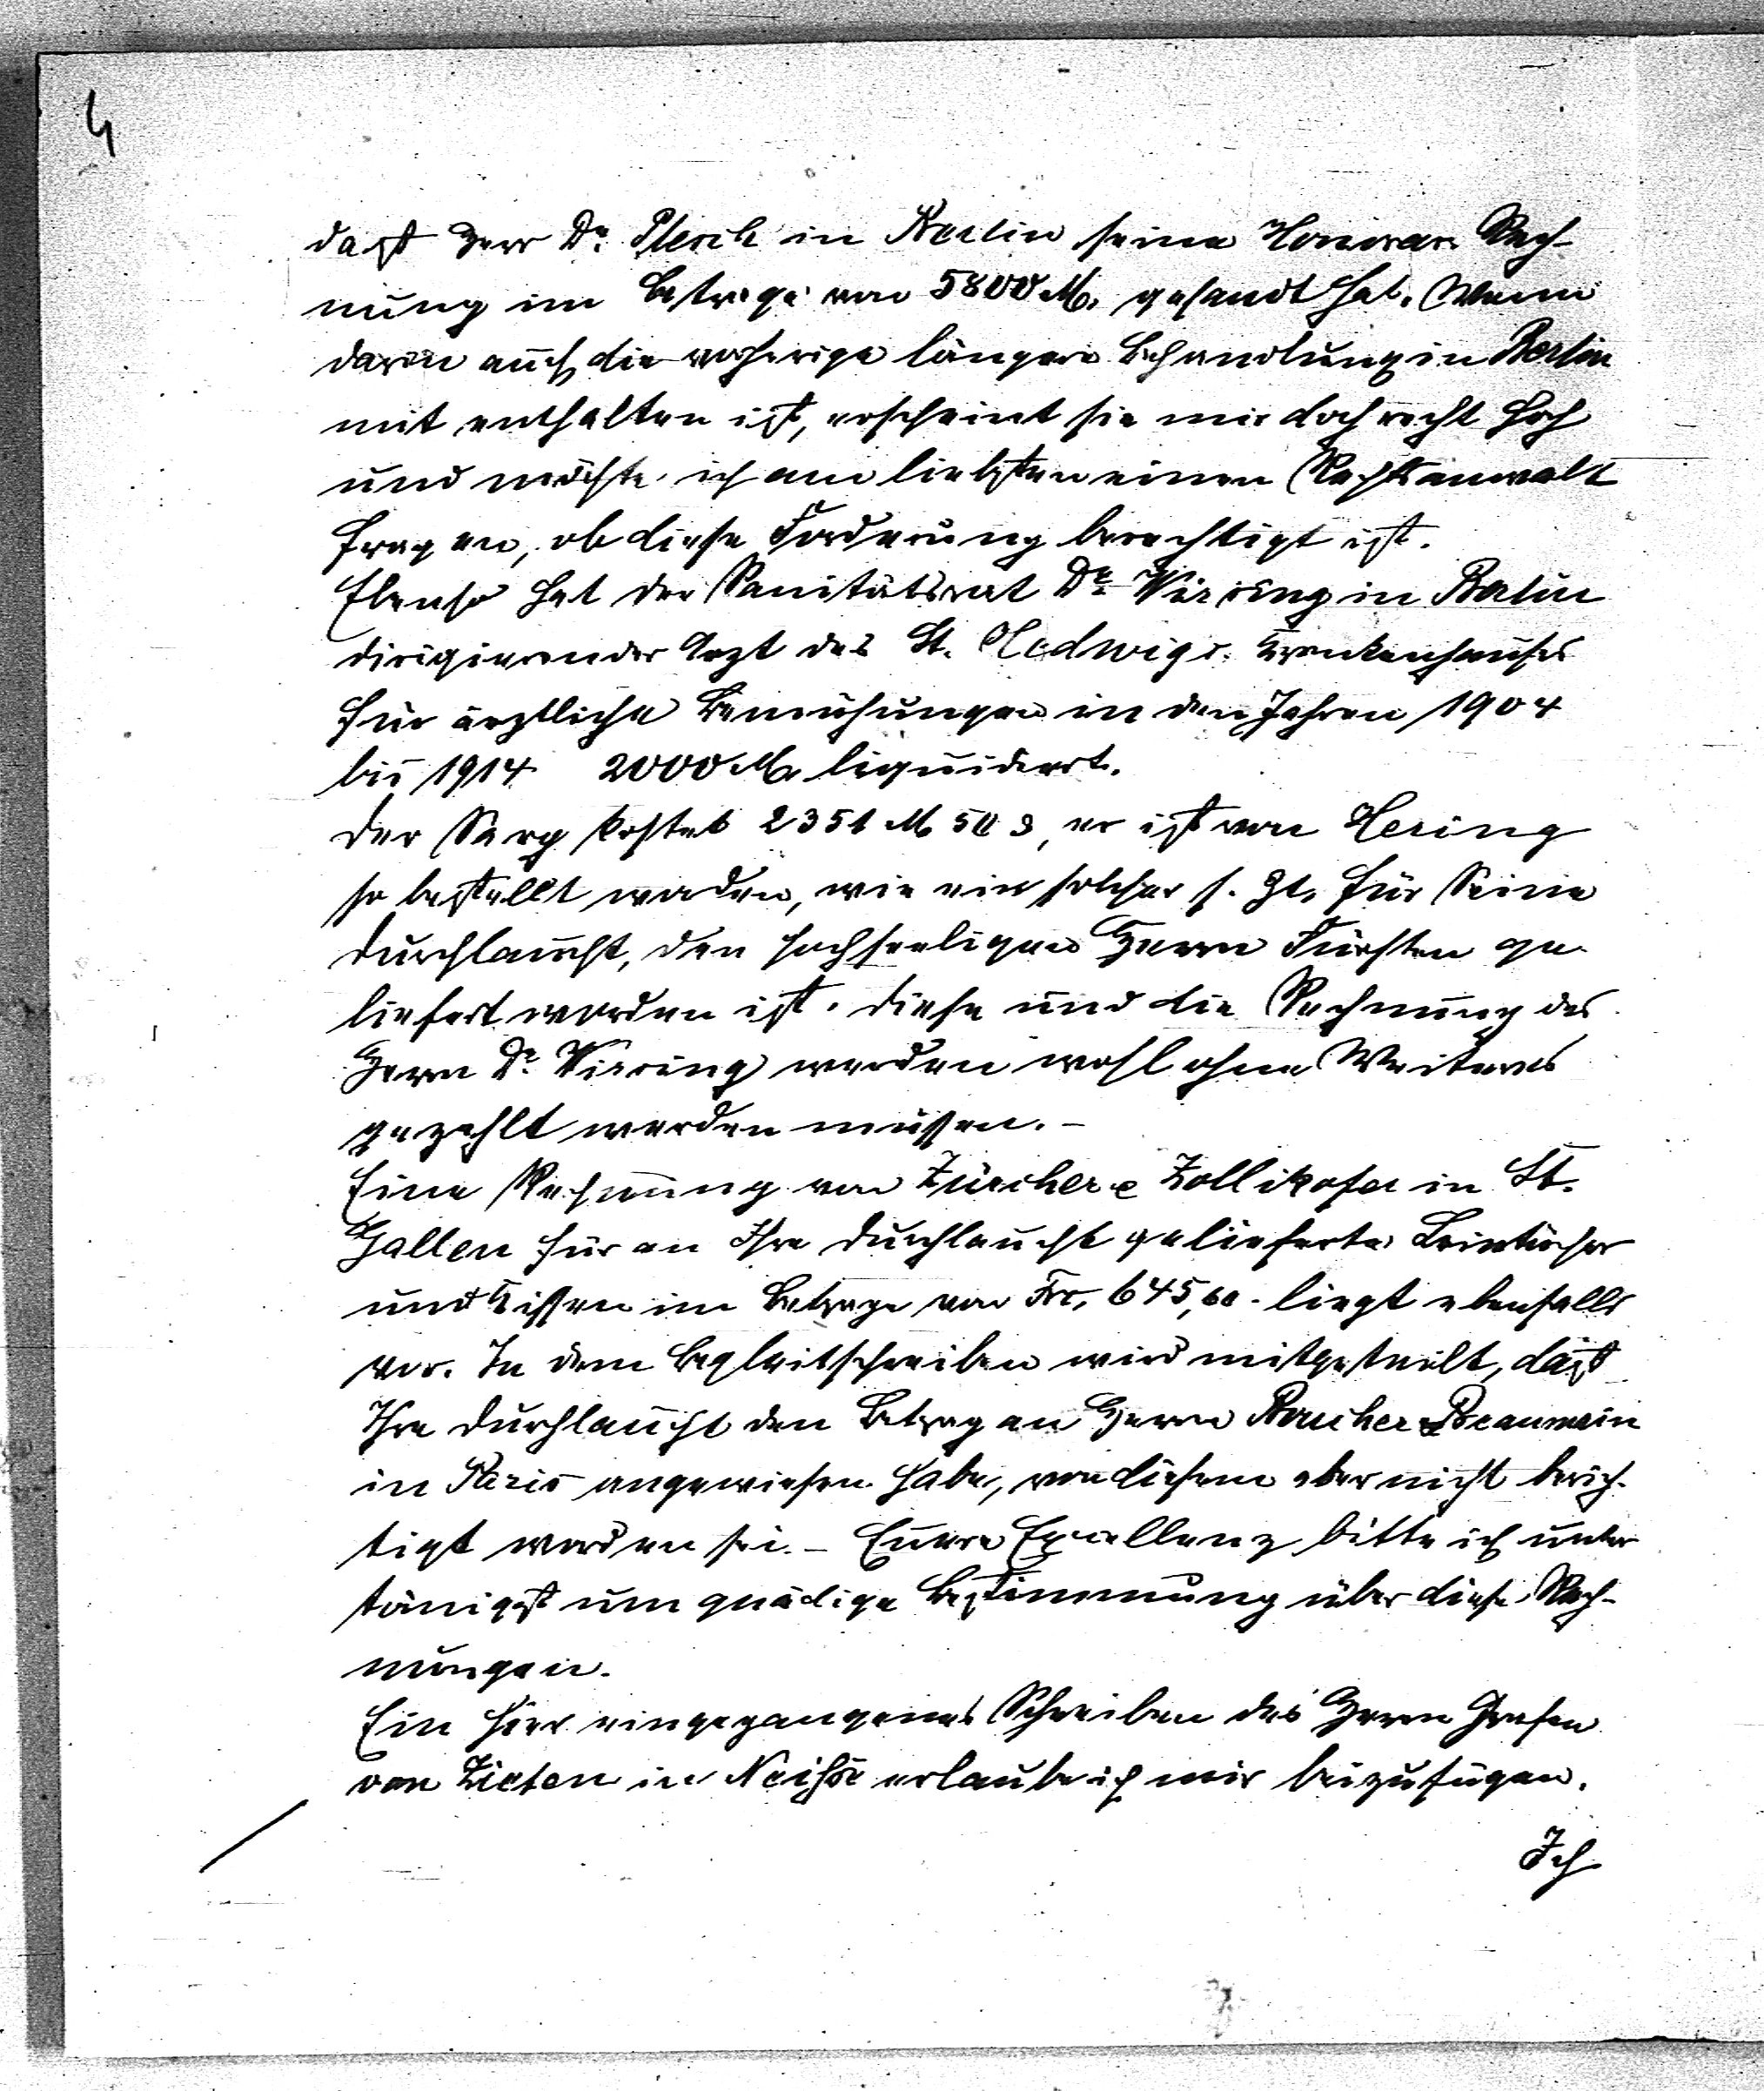 4
daß Herr Dr. Plesch in Berlin seine Honorar Rech-
nung im Betrage von 5800 M. gesandt hat. Wenn
darin auch die vorherige längere Behandlung in Berlin
mit enthalten ist, erscheint sie mir doch recht hoch
und möchte ich am liebsten einen Rechtsanwalt
fragen, ob diese Forderung berechtigt ist.
Ebenso hat der Sanitätsrat Dr. Wirsing in Berlin
dirigierender Arzt des St. Hedwigs-Krankenhauses
für ärztliche Bemühungen in den Jahren 1904
bis 1914 2000 M. liquidiert.
Der Sarg kostet 2351 M 50 ₰, er ist von Hering
so bestellt worden, wie ein solcher s. Zt. für Seine
Durchlaucht, den hochseligen Herrn Fürsten ge-
liefert worden ist. Diese und die Rechnung des
Herrn Dr. Wirsing werden wohl ohne Weiteres
gezahlt werden müssen. -
Eine Rechnung von Zürcher & Zollikofer in St.
Gallen für an Ihre Durchlaucht gelieferte
und Kissen im Betrage von Frc. 645,60 - liegt ebenfalls
vor. In dem Begleitschreiben wird mitgeteilt, daß
Ihre Durchlaucht den Betrag an Herrn
in Paris angewiesen habe, von diesem aber nicht berich-
tigt worden sei. - Euere Excellenz bitte ich unter-
tänigst um gnädige Bestimmung über diese Rech-
nungen.
Ein hier eingegangenes Schreiben des Herrn Grafen
von Zieten in Neiße erlaube ich mir beizufügen.
Ich